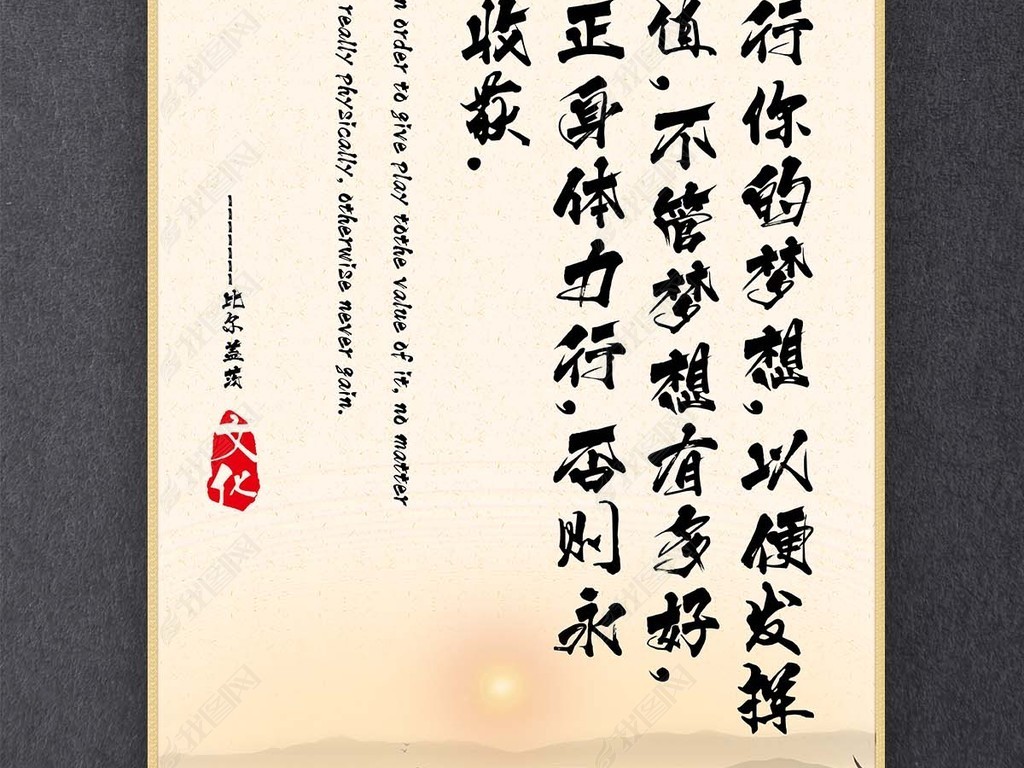 行你的梦想,以便发挥
值,不管梦想有多好,
正身体力行,否则永
收获.
n order to give play tothe value of it, no matter
really physically, otherwise never gain.
----------比尔盖茨
文化